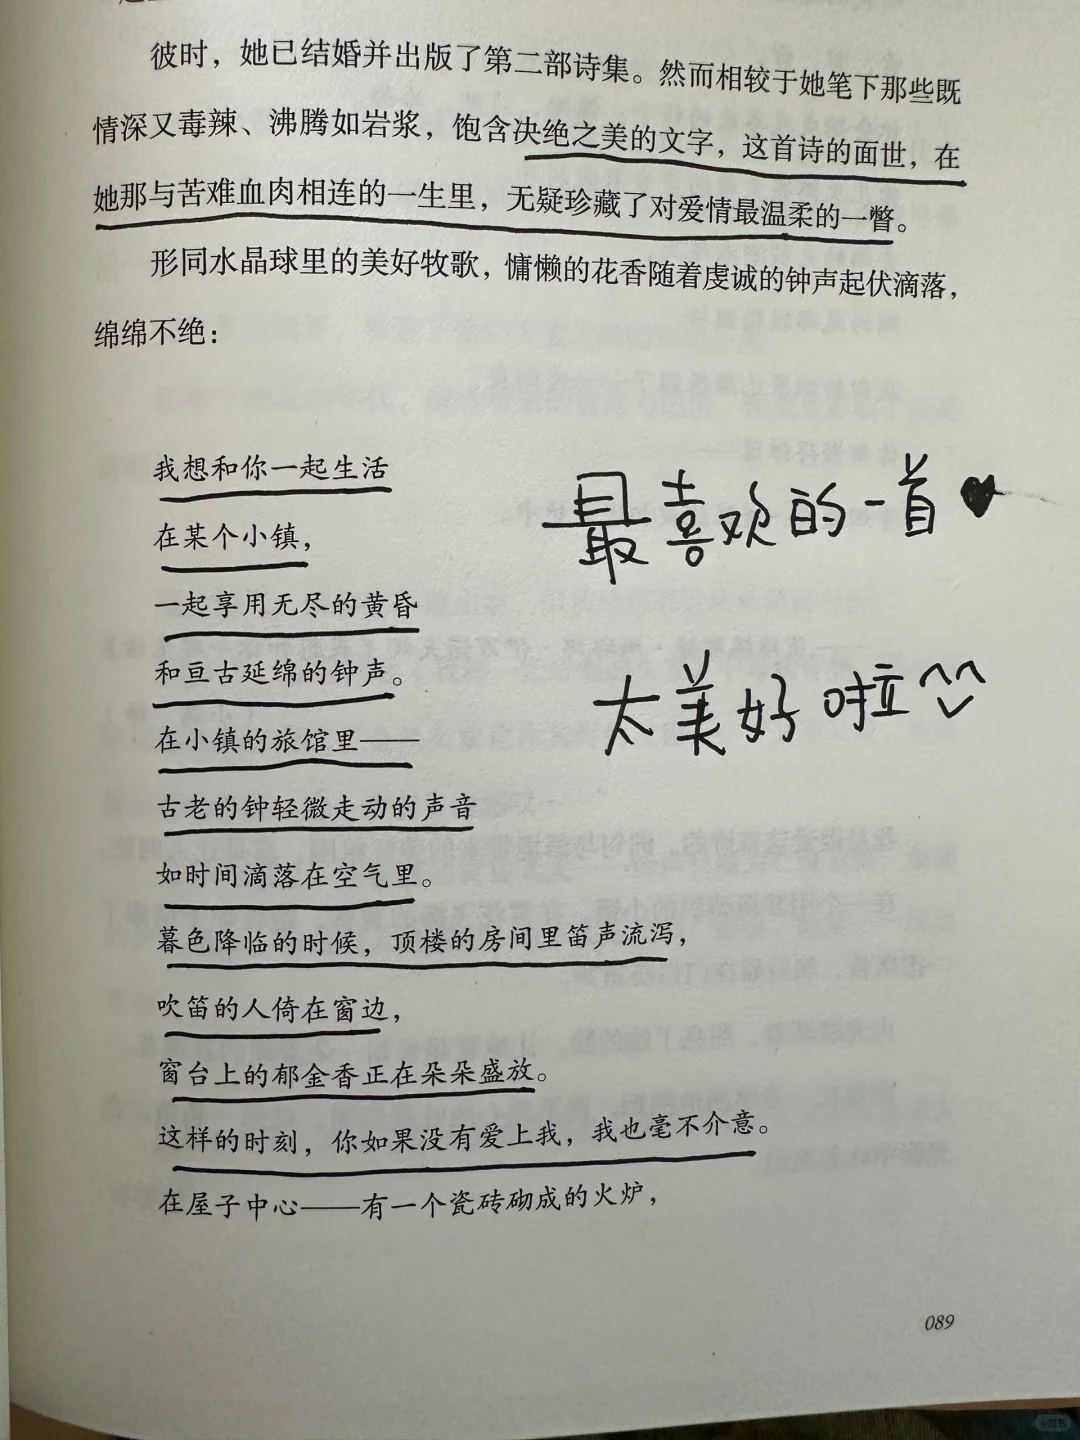 彼时，她已结婚并出版了第二部诗集。然而相较于她笔下那些既
情深又毒辣、沸腾如岩浆，饱含决绝之美的文字，这首诗的面世，在
她那与苦难血肉相连的一生里，无疑珍藏了对爱情最温柔的一瞥。
形同水晶球里的美好牧歌，慵懒的花香随着虔诚的钟声起伏滴落，
绵绵不绝：
我想和你一起生活
最喜欢的一首
在某个小镇，
一起享用无尽的黄昏
和亘古延绵的钟声。
太美好啦
在小镇的旅馆里——
古老的钟轻微走动的声音
如时间滴落在空气里。
暮色降临的时候，顶楼的房间里笛声流泻，
吹笛的人倚在窗边，
窗台上的郁金香正在朵朵盛放。
这样的时刻，你如果没有爱上我，我也毫不介意。
在屋子中心——有一个瓷砖砌成的火炉，
089
小红书